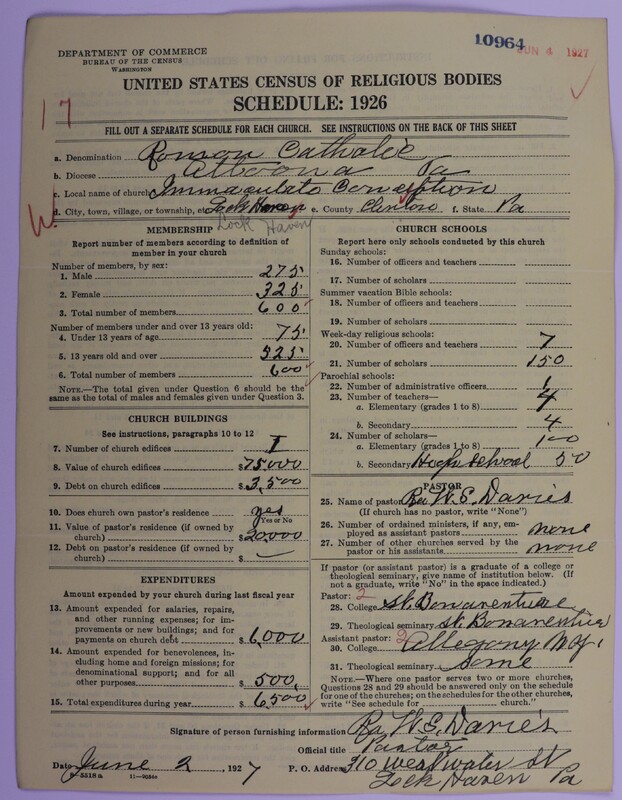 DEPARTMENT OF COMMERCE
BUREAU OF THE CENSUS
WASHINGTON
10964
JUN 4 1927
17
UNITED STATES CENSUS OF RELIGIOUS BODIES
SCHEDULE: 1926
FILL OUT A SEPARATE SCHEDULE FOR EACH CHURCH. SEE INSTRUCTIONS ON THE BACK OF THIS SHEET
a. Denomination Roman Catholic
b. Diocese Altoona Pa
c. Local name of church Immaculate Conception
d. City, town, village, or township, etc. Lock Haven e. County Clinton f. State Pa
Lock Haven
MEMBERSHIP
Report number of members according to definition of member in your church
Number of members, by sex:
1. Male 275
2. Female 325
3. Total number of members 600
Number of members under and over 13 years old:
4. Under 13 years of age 75
5. 13 years old and over 525
6. Total number of members 600
NOTE.—The total given under Question 6 should be the
same as the total of males and females given under Question 3.
CHURCH BUILDINGS
See instructions, paragraphs 10 to 12
7. Number of church edifices 1
8. Value of church edifices $75000
9. Debt on church edifices $3,500
10. Does church own pastor's residence yes
(Yes or No)
11. Value of pastor's residence (if owned by
church) $20000
12. Debt on pastor's residence (if owned by
church) $ —
EXPENDITURES
Amount expended by your church during last fiscal year
13. Amount expended for salaries, repairs,
and other running expenses; for im-
provements or new buildings; and for
payments on church debt $6,000
14. Amount expended for benevolences,
including home and foreign missions; for
denominational support; and for all
other purposes $500
15. Total expenditures during year $6500
CHURCH SCHOOLS
Report here only schools conducted by this church
Sunday schools:
16. Number of officers and teachers
17. Number of scholars
Summer vacation Bible schools:
18. Number of officers and teachers
19. Number of scholars
Week-day religious schools:
20. Number of officers and teachers 7
21. Number of scholars 150
Parochial schools:
22. Number of administrative officers 1
23. Number of teachers—
a. Elementary (grades 1 to 8) 4
b. Secondary 4
24. Number of scholars—
a. Elementary (grades 1 to 8) 100
b. Secondary High School 50
PASTOR
25. Name of pastor Rev W. E. Davies
(If church has no pastor, write "None")
26. Number of ordained ministers, if any, em-
ployed as assistant pastors none
27. Number of other churches served by the
pastor or his assistants none
If pastor (or assistant pastor) is a graduate of a college or
theological seminary, give name of institution below. (If
not a graduate, write "No" in the space indicated.)
Pastor: 2
28. College St. Bonaventure
29. Theological seminary St. Bonaventure
Assistant pastor: 2
30. College Allegany N.Y.
31. Theological seminary Same
NOTE.—Where one pastor serves two or more churches,
Questions 28 and 29 should be answered only on the schedule
for one of the churches; on the schedules for the other churches,
write "See schedule for church."
Signature of person furnishing information Rev W. E. Davies
Official title Pastor
Date June 2, 1927 P. O. Address 310 West Water St
Lock Haven Pa
8-5518a 11-9034